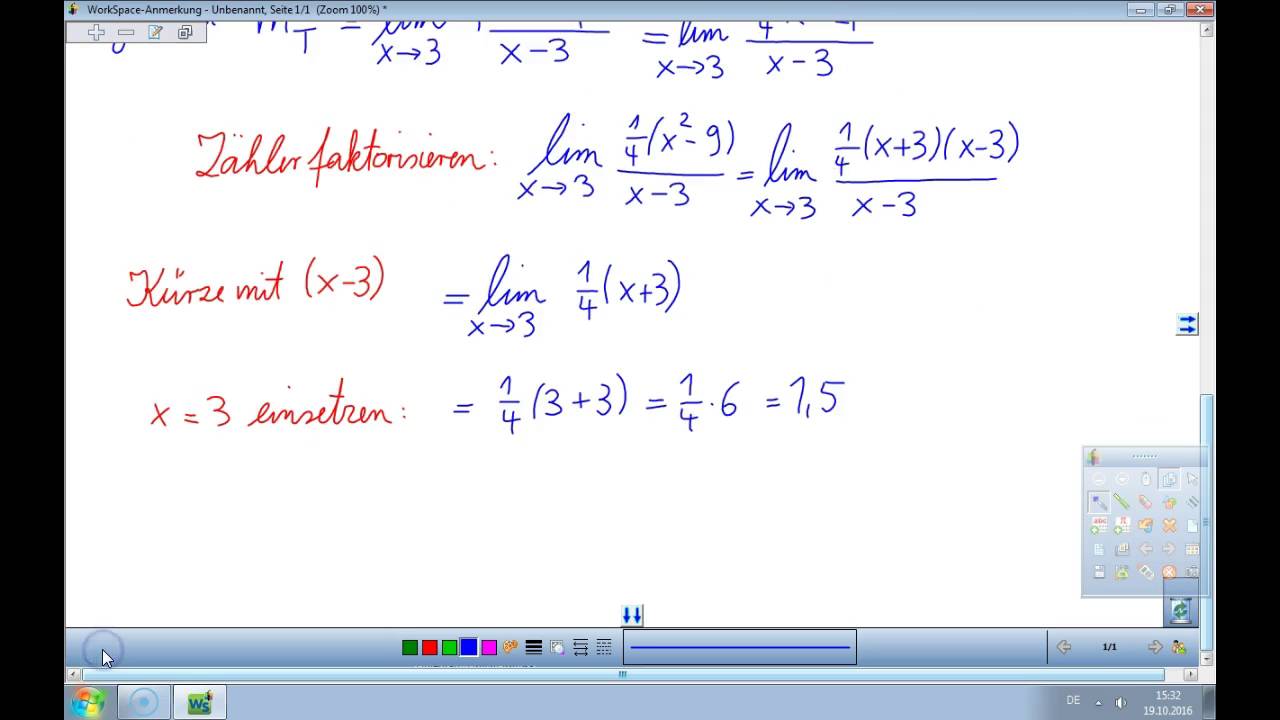 WorkSpace-Anmerkung - Unbenannt, Seite 1/1 (Zoom 100%) *
m_T = lim x→3 x-3 = lim x→3 x-3
Zähler faktorisieren: lim x→3 1/4(x²-9)/x-3 = lim x→3 1/4(x+3)(x-3)/x-3
Kürze mit (x-3) = lim x→3 1/4(x+3)
x = 3 einsetzen: = 1/4(3+3) = 1/4·6 = 1,5
1/1
DE 15:32
19.10.2016